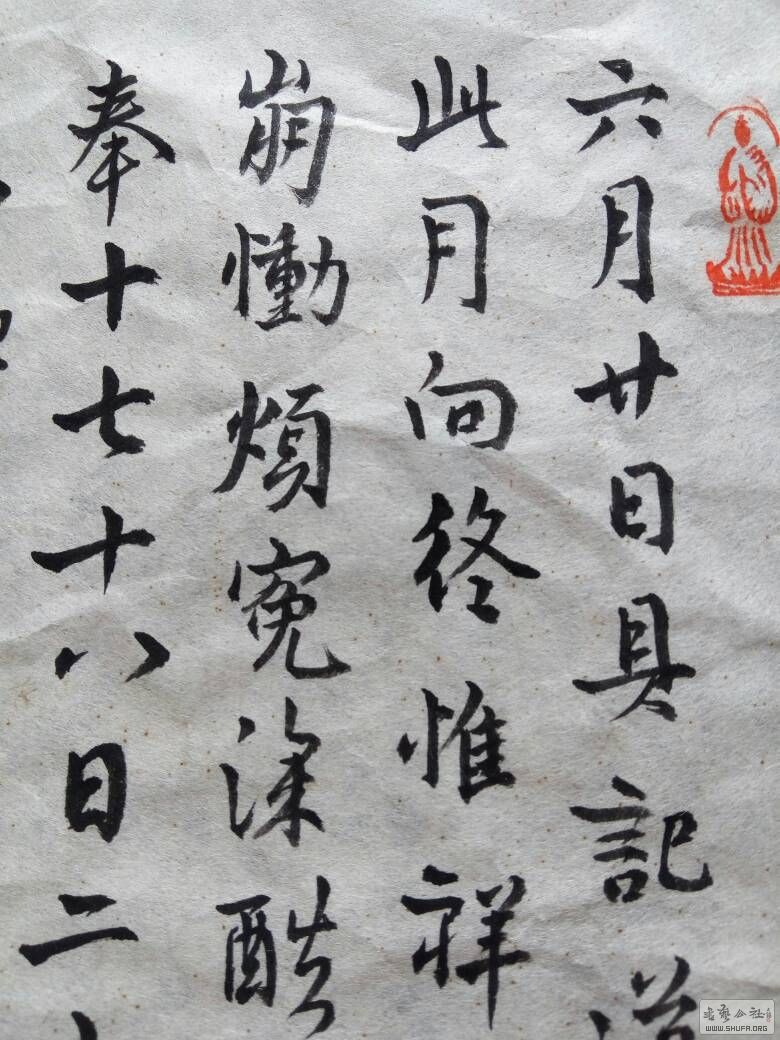 六月廿日具記
此月向終惟祥
崩慟煩冤深酷
奉十七十八日二
書藝公社
WWW.SHUFA.ORG